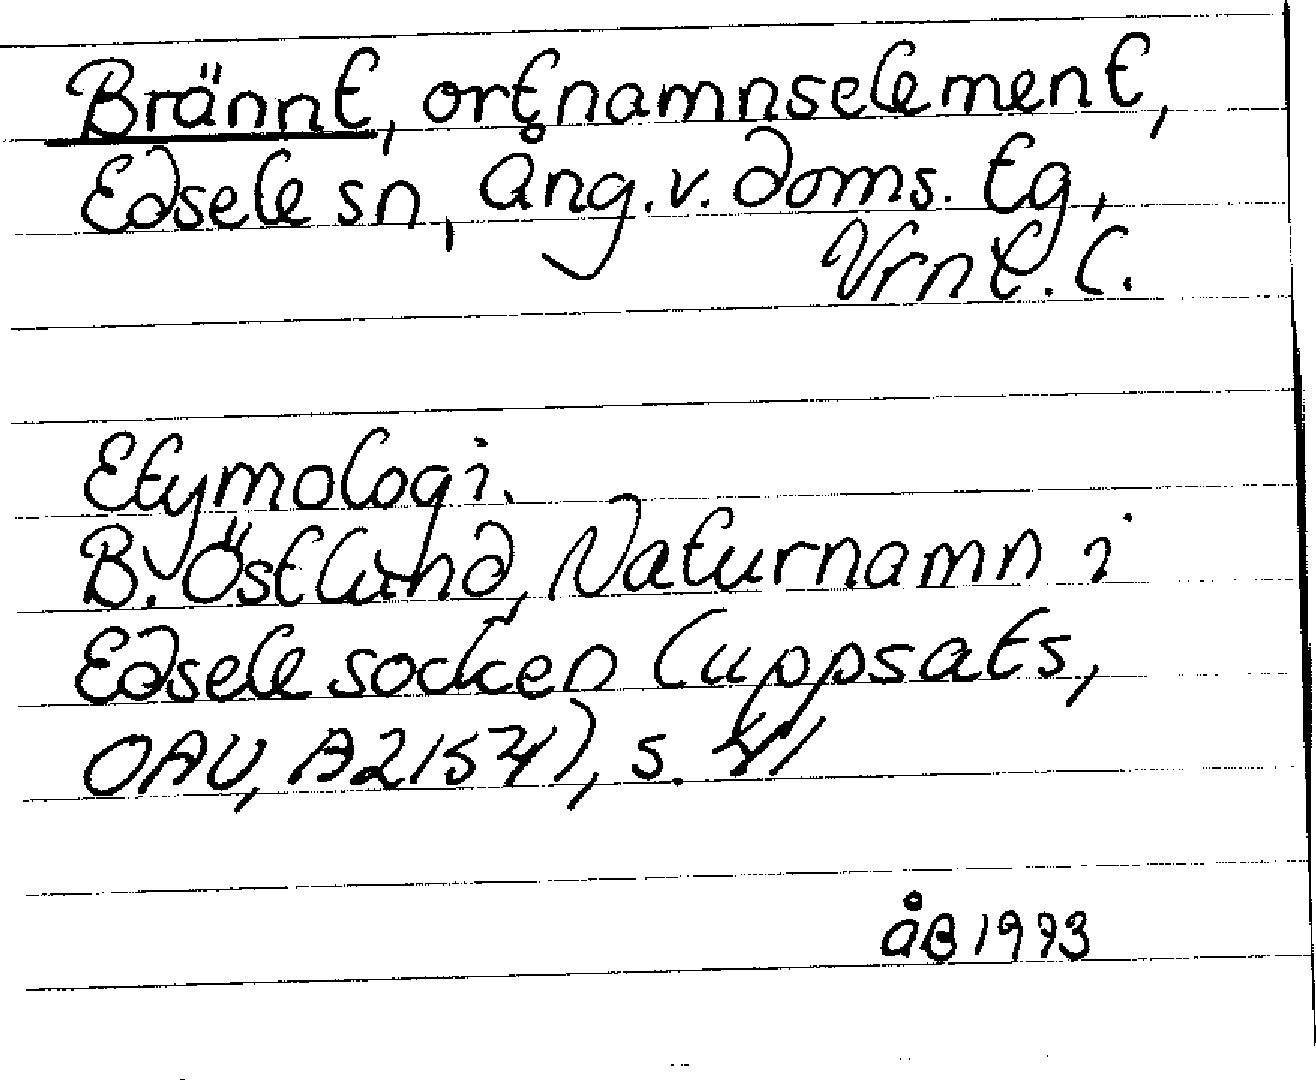 Brännt, ortnamnselement,
Edsele sn, Ång. v. doms. tg,
Vrnl. l.
Etymologi.
B. Östlund, Naturnamn i
Edsele socken (uppsats,
OAU, A2154), s. 41
åB 1993